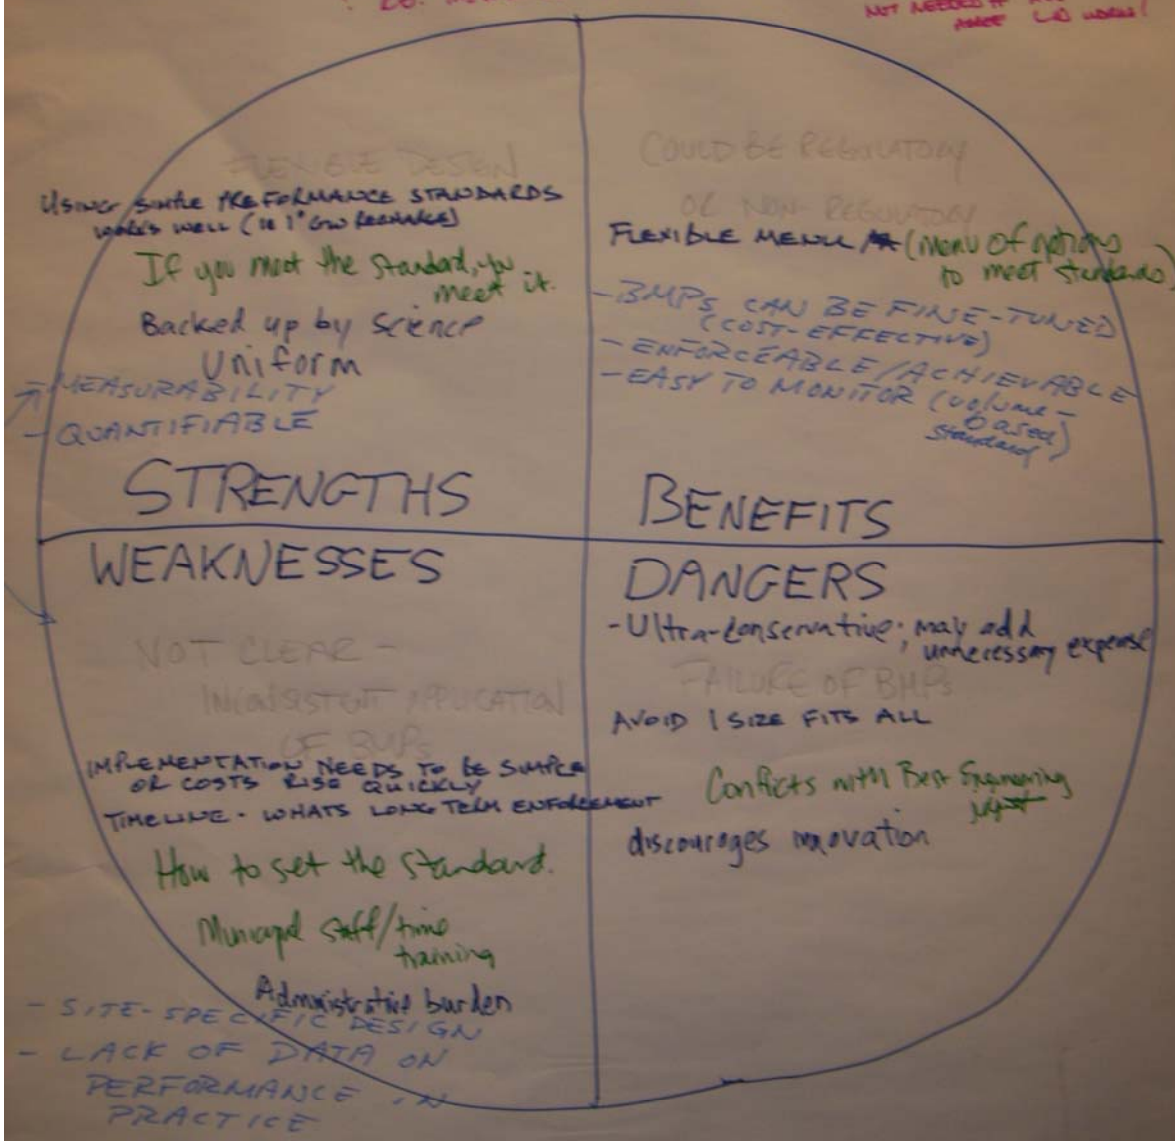 NOT NEEDED IF
LID WORKS!
FLEXIBLE DESIGN
USING SIMPLE PREFORMANCE STANDARDS
WORKS WELL (IE 1" GW RECHARGE)
If you meet the standard, you
meet it.
Backed up by science
Uniform
MEASURABILITY
- QUANTIFIABLE
STRENGTHS
COULD BE REGULATORY
OR NON-REGULATORY
FLEXIBLE MENU (menu of options
to meet standards)
- BMPs CAN BE FINE-TUNED
(COST-EFFECTIVE)
- ENFORCEABLE/ACHIEVABLE
- EASY TO MONITOR (volume-
based)
standard
BENEFITS
WEAKNESSES
NOT CLEAR -
INCONSISTENT APPLICATION
OF BMPs
IMPLEMENTATION NEEDS TO BE SIMPLE
OR COSTS RISE QUICKLY
TIMELINE - WHATS LONG TERM ENFORCEMENT
How to set the standard.
Municipal staff/time
training
Administrative burden
- SITE-SPECIFIC DESIGN
- LACK OF DATA ON
PERFORMANCE IN
PRACTICE
DANGERS
- Ultra-conservative; may add
unnecessary expense
FAILURE OF BMPs
AVOID 1 SIZE FITS ALL
Conflicts with Best Engineering
discourages innovation